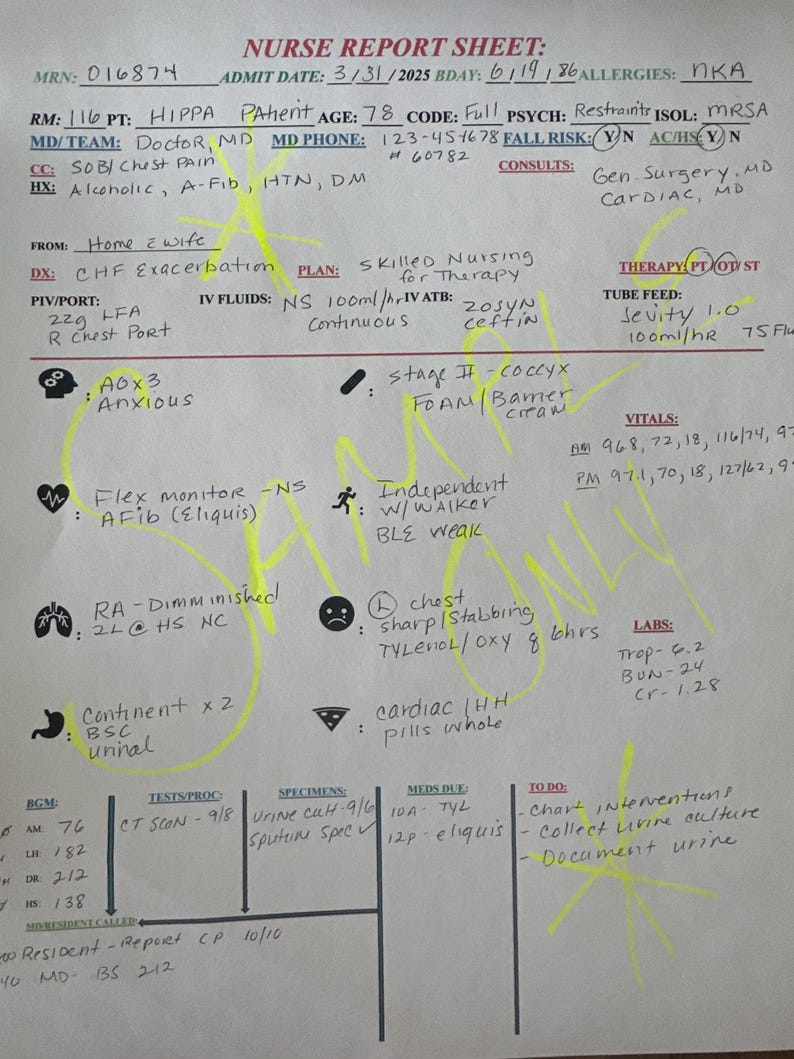 NURSE REPORT SHEET:
MRN: 016874 ADMIT DATE: 3/31/2025 BDAY: 6/19/86 ALLERGIES: NKA
RM: 116 PT: HIPPA PAtient AGE: 78 CODE: Full PSYCH: Restraints ISOL: MRSA
MD/TEAM: DoctoR, MD MD PHONE: 123-45-1678 FALL RISK: Y/N AC/HS: Y/N
# 60782
CC: SOB/Chest PAin
CONSULTS: Gen. Surgery, MD
HX: Alcoholic, A-Fib, HTN, DM
CARDIAC, MD
FROM: Home c̄ wife
DX: CHF Exacerbation PLAN: Skilled Nursing for Therapy THERAPY: PT/OT/ST
PIV/PORT: IV FLUIDS: NS 100ml/hr IV ATB: ZOSYN TUBE FEED:
22g LFA Continuous ceftin Jevity 1.0
R Chest PoRt 100ml/hR 75 Flu
: AOx3
Anxious
: Stage II - coccyx
FOAM/Barrier cream
VITALS:
AM 96.8, 72, 18, 116/74, 97
PM 97.1, 70, 18, 127/62, 9
: Flex monitor - NS
AFib (Eliquis)
: Independent
W/WALKER
BLE weak
: RA - Dimminished
2L @ HS NC
: L chest
sharp/Stabbing
TYLenoL/OXY q 6hrs
LABS:
Trop- 6.2
BUN- 24
Cr- 1.28
: Continent x 2
BSC
urinal
: cardiac/HH
pills whole
BGM: TESTS/PROC: SPECIMENS: MEDS DUE: TO DO:
AM: 76
LH: 182
DR: 212
HS: 138
CT SCaN - 9/8
Urine cult-9/6
Sputum Spec ✓
10A- TYL
12p- eliquis
- Chart interventions
- Collect urine culture
- Document urine
MD/RESIDENT CALLED:
Resident - Report CP 10/10
MD- BS 212
SAMPLE
ONLY